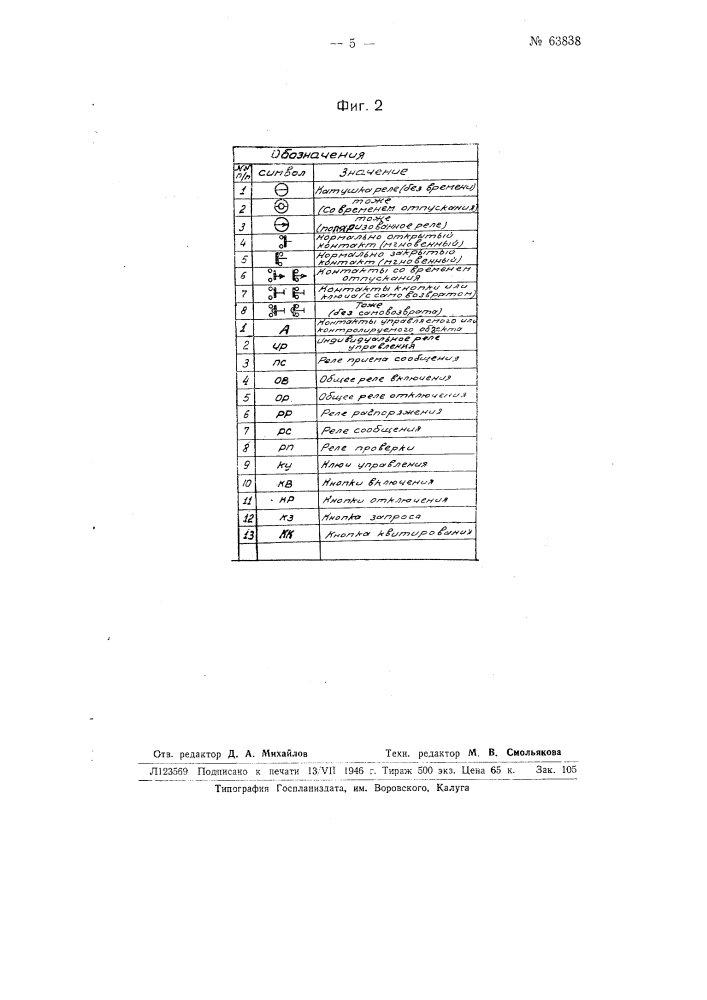 — 5 —
№ 63838
Фиг. 2
Обозначения
№№ п/п символ Значение
1 Катушка реле (без времени)
2 тоже (Со временем отпускания)
3 тоже (поляризованное реле)
4 Нормально открытый контакт (мгновенный)
5 Нормально закрытый контакт (мгновенный)
6 Контакты со временем отпускания
7 Контакты кнопки или ключа (с самовозвратом)
8 Тоже (без самовозврата)
1 А Контакты управляемого или контролируемого объекта
2 ир индивидуальное реле управления
3 пс Реле приема сообщения
4 ов Общее реле включения
5 ор Общее реле отключения
6 рр Реле распоряжения
7 рс Реле сообщения
8 рп Реле проверки
9 ку Ключи управления
10 кв Кнопки включения
11 кр Кнопки отключения
12 кз Кнопка запроса
13 КК Кнопка квитирования
Отв. редактор Д. А. Михайлов Техн. редактор М. В. Смольякова
Л123569 Подписано к печати 13/VII 1946 г. Тираж 500 экз. Цена 65 к. Зак. 105
Типография Госпланиздата, им. Воровского, Калуга